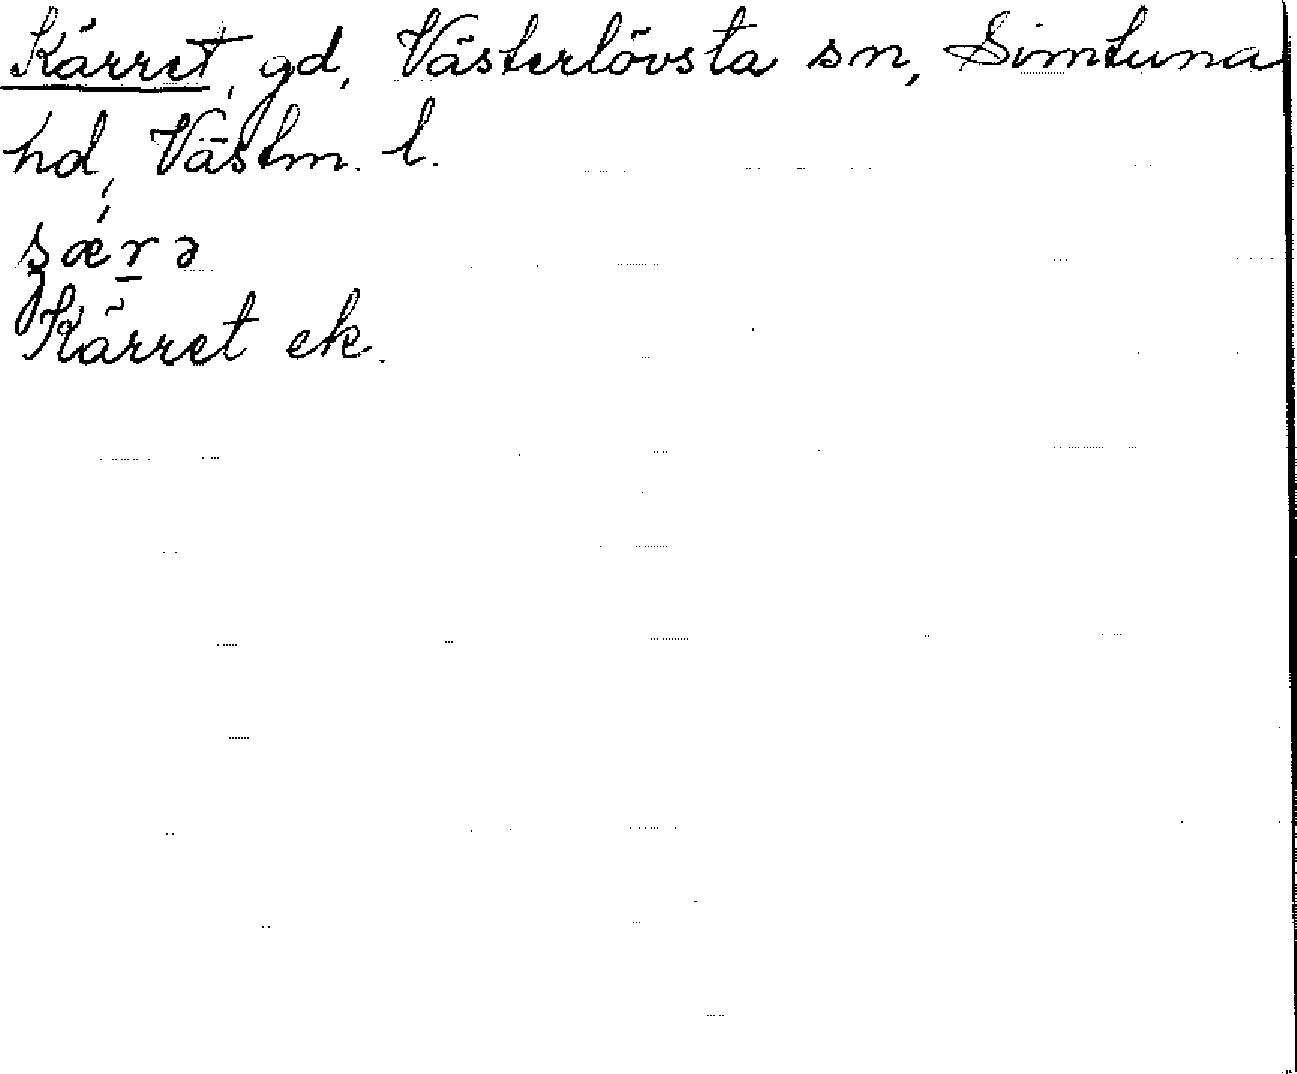 Kärret, gd, Västerlövsta sn, Simtuna
hd, Västm. l.
Kärret ek.